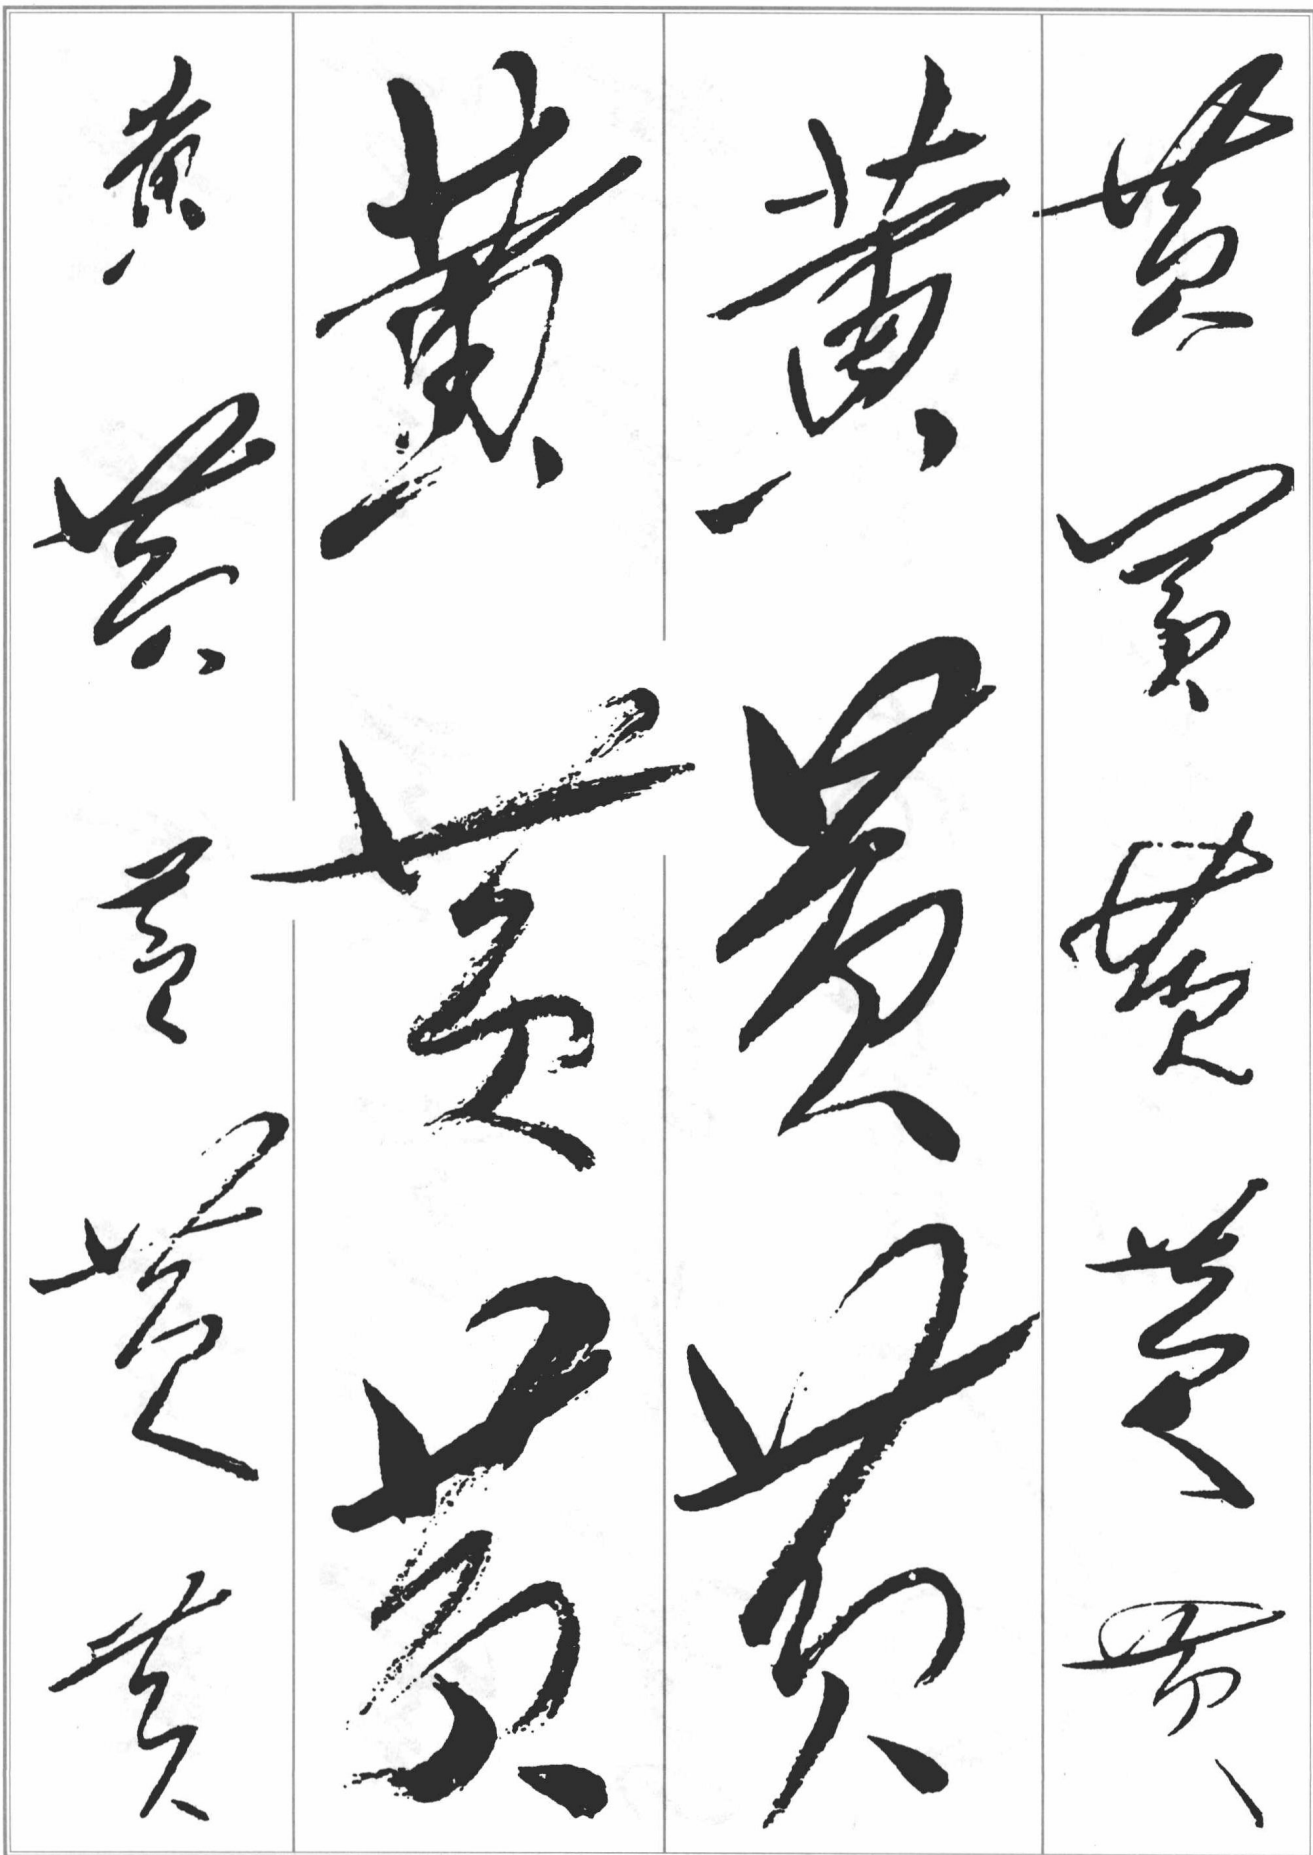 黄黄黄黄黄
黄黄黄
黄黄黄
黄黄黄黄黄